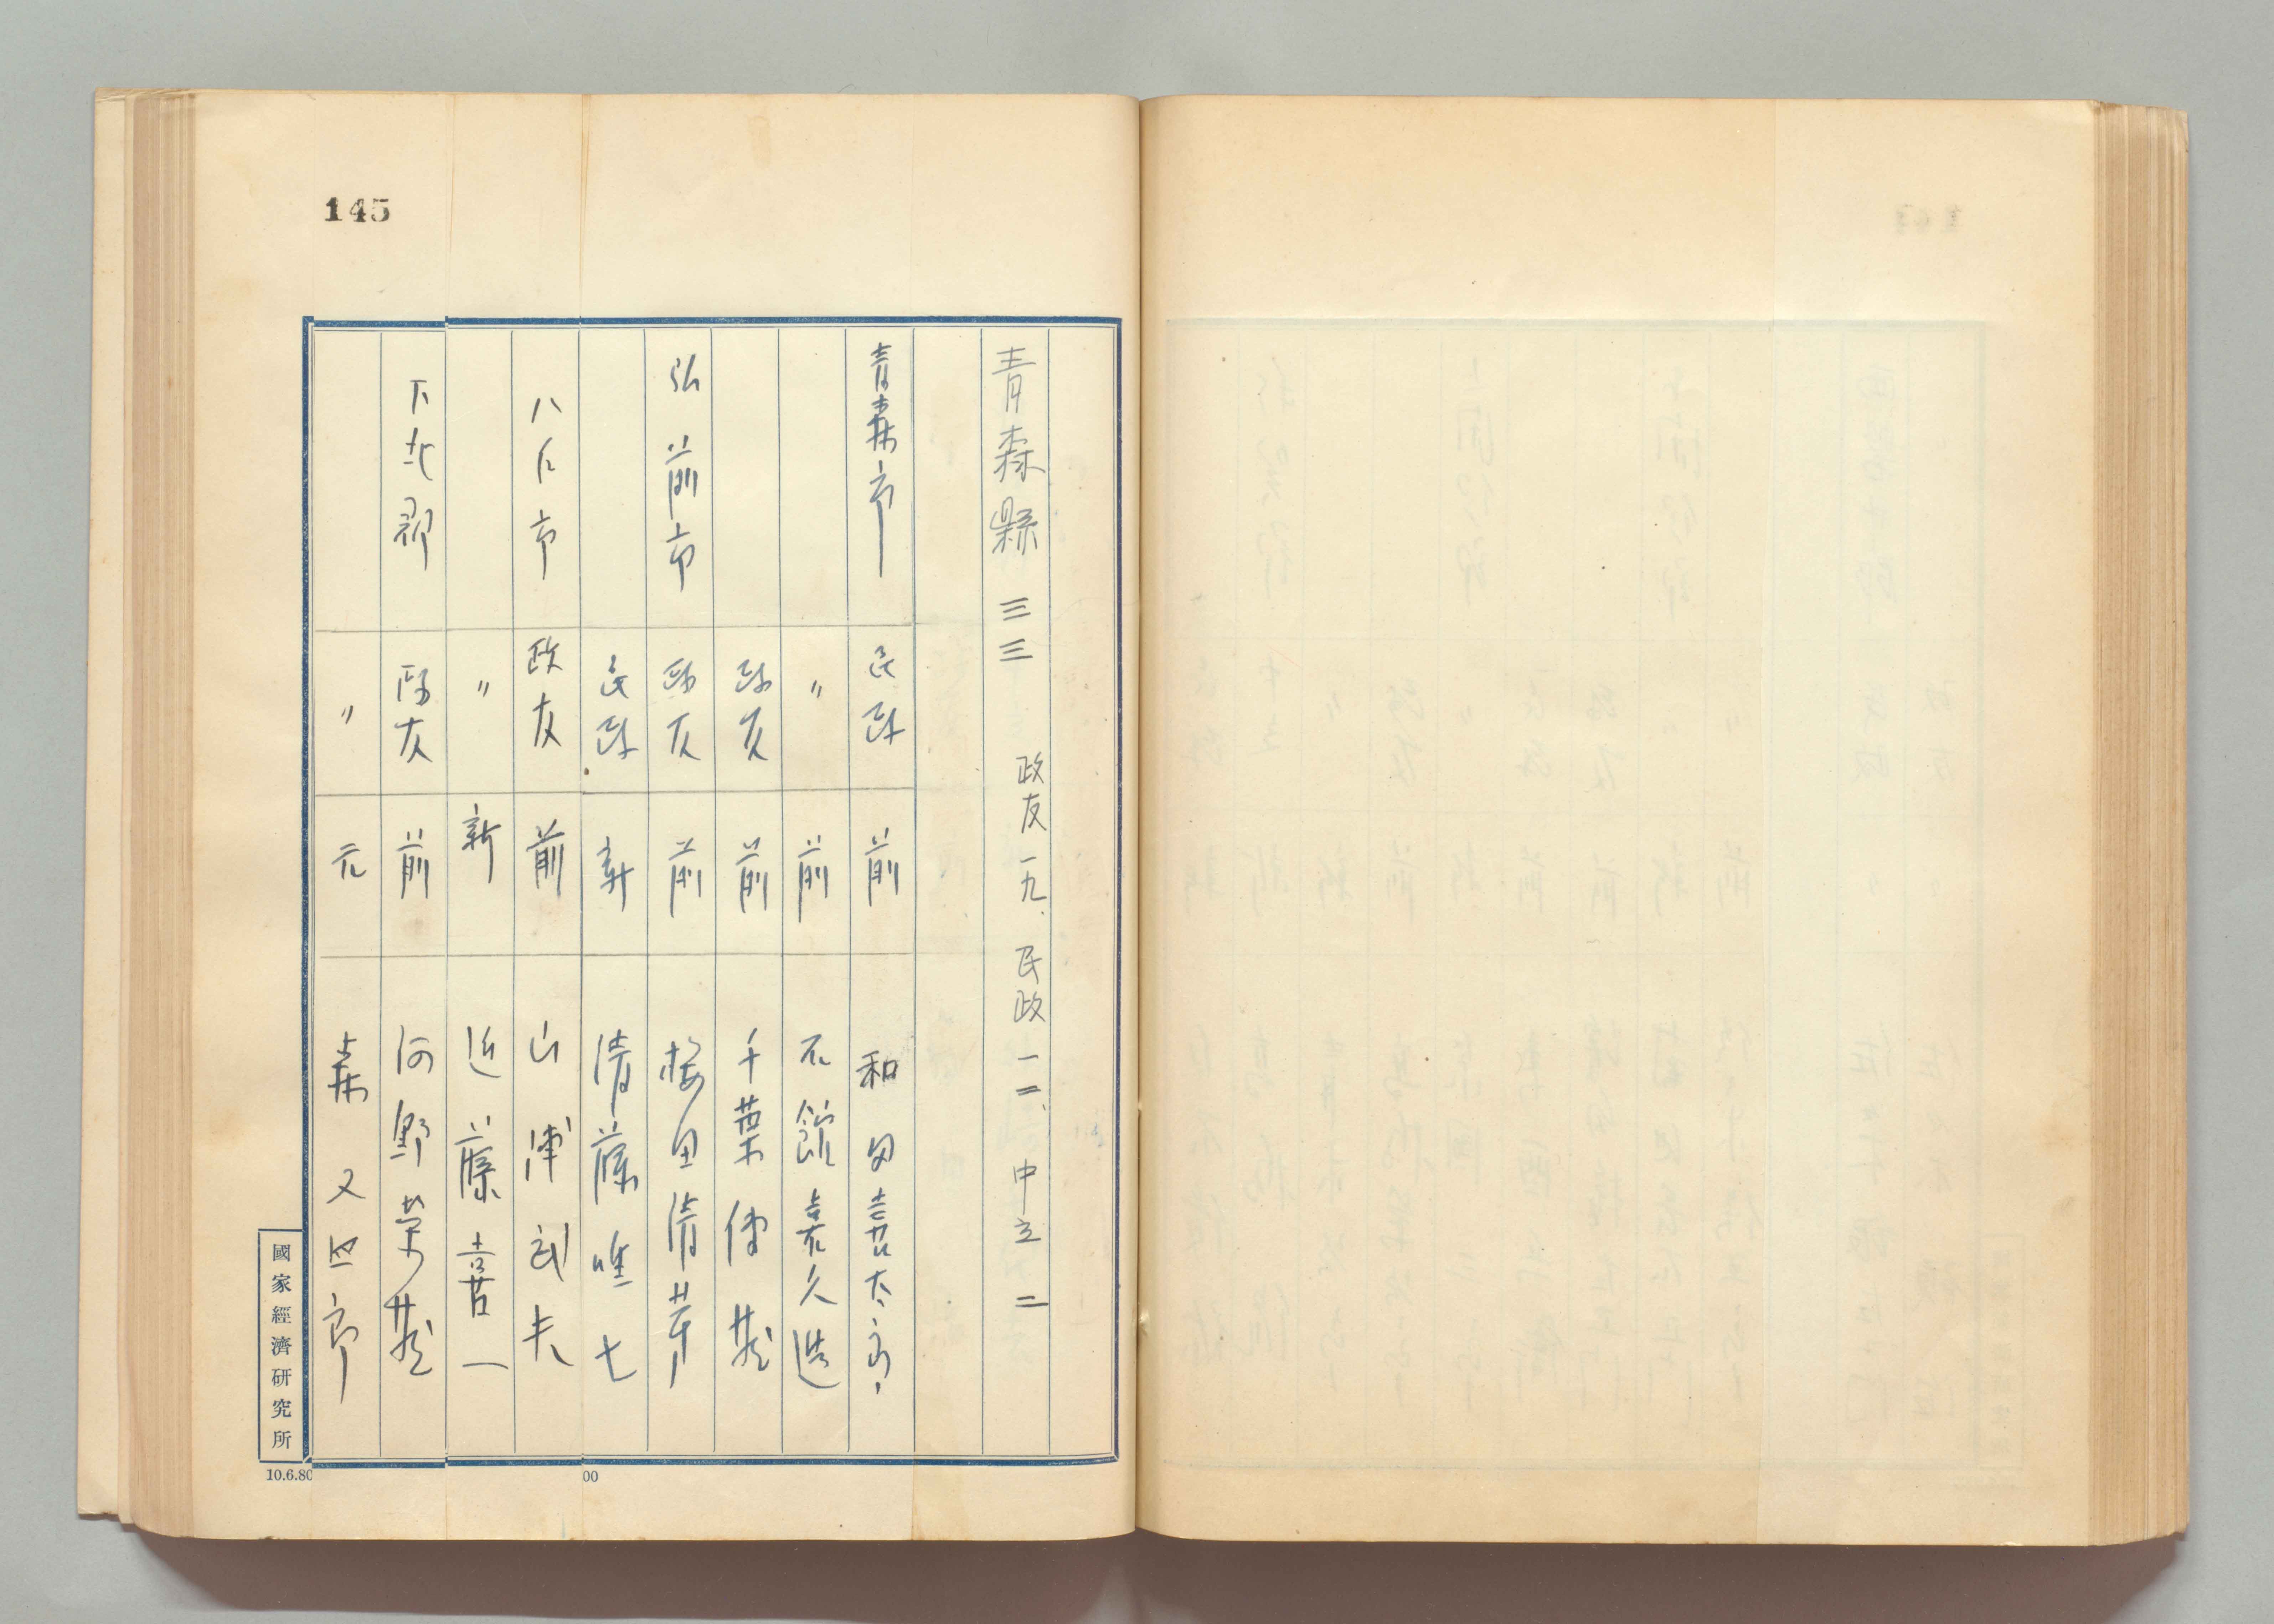 145
青森縣 三三 政友 一九、民政 一二、中立 二
青森市 民政 前 和田喜太郎
〃 前 石館嘉久造
政友 前 千葉傳藏
弘前市 政友 前 桜田清芽
民政 新 清藤唯七
八戸市 政友 前 山浦武夫
〃 新 近藤喜一
下北郡 政友 前 河野榮藏
〃 元 森 又四郎
國家經濟研究所
10.6.80
00